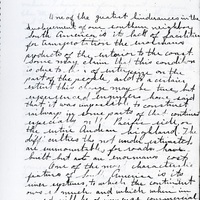 One of the greatest hindrances in the
development of our southern neighbor
South America is its lack of facilities
for transportation the
products of the interior to the coast.
Some may claim that this condition
is due to a lack of enterprise on the
part of the people, and to a certain
extent this charge may be true, but
experienced engineers have said
that it was impossible to construct
railways in some parts of the continent
especially on the Pacific side, or
the entire Andean highland. The
difficulties, tho not underestimated,
are surmountable, for roads have
built but at an enormous cost.
One of the most characteristic
features of South America is its
river systems, to which the continent
owes much and which in
commercial